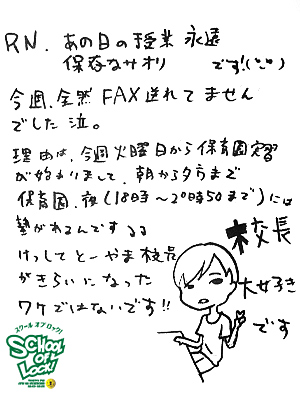 RN. あの日の授業 永遠
保存なサオリ です!(°◡°)
今週、全然 FAX送れてません
でした 泣。
理由は、今週火曜日から保育園実習
が始まりまして、朝から夕方まで
保育園、夜(18時〜20時50分まで)には
塾があるんですするる
けっしてとーやま校長
がきらいになった
ワケではないです!!
校長
大好き
です
スクール オブ ロック!
SCHOOL
OF
LOCK!